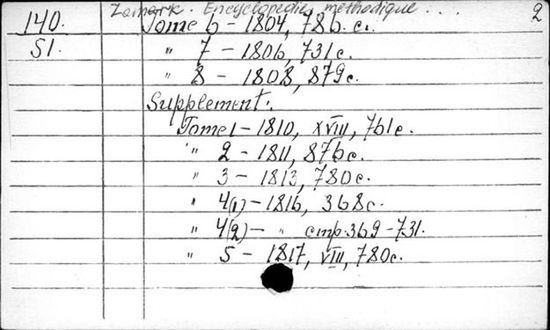 Lamark. Encyclopédie méthodique . . . 2
140. Tome 6 - 1804, 786 c.
51. " 7 - 1806, 731 c.
" 8 - 1808, 879 c.
Supplement.
Tome 1 - 1810, XVIII, 761 c.
" 2 - 1811, 876 c.
" 3 - 1813, 780 c.
" 4(1) - 1816, 368 c.
" 4(2) - " стр. 369-731.
" 5 - 1817, VIII, 780 c.